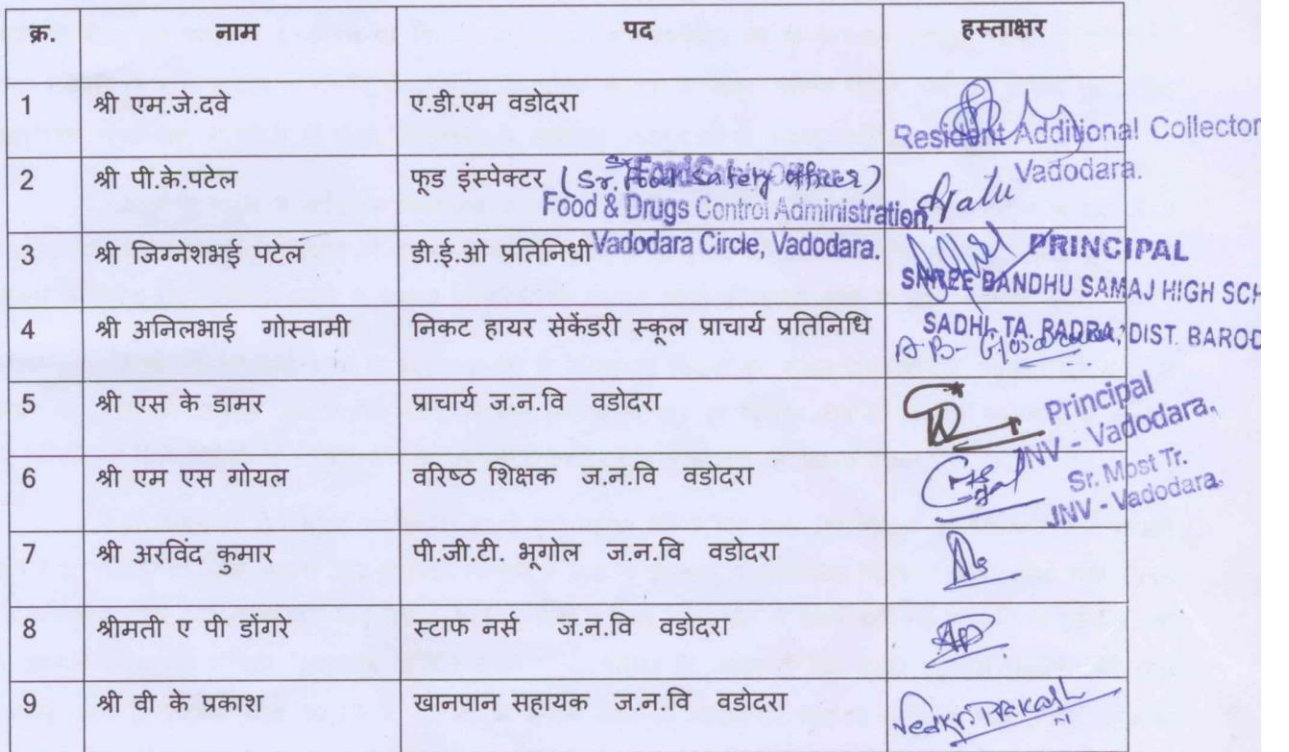 क्र. नाम पद हस्ताक्षर
1 श्री एम.जे.दवे ए.डी.एम वडोदरा
Resident Additional Collector
Vadodara.
2 श्री पी.के.पटेल फूड इंस्पेक्टर (Sr. Food Safety Officer)
Food & Drugs Control Administration,
Vadodara Circle, Vadodara.
3 श्री जिग्नेशभाई पटेल डी.ई.ओ प्रतिनिधी
PRINCIPAL
SHREE BANDHU SAMAJ HIGH SCH
SADHI, TA. PADRA, DIST. BAROD
4 श्री अनिलभाई गोस्वामी निकट हायर सेकेंडरी स्कूल प्राचार्य प्रतिनिधि
5 श्री एस के डामर प्राचार्य ज.न.वि वडोदरा
Principal
JNV - Vadodara,
6 श्री एम एस गोयल वरिष्ठ शिक्षक ज.न.वि वडोदरा
Sr. Most Tr.
JNV - Vadodara.
7 श्री अरविंद कुमार पी.जी.टी. भूगोल ज.न.वि वडोदरा
8 श्रीमती ए पी डोंगरे स्टाफ नर्स ज.न.वि वडोदरा
9 श्री वी के प्रकाश खानपान सहायक ज.न.वि वडोदरा